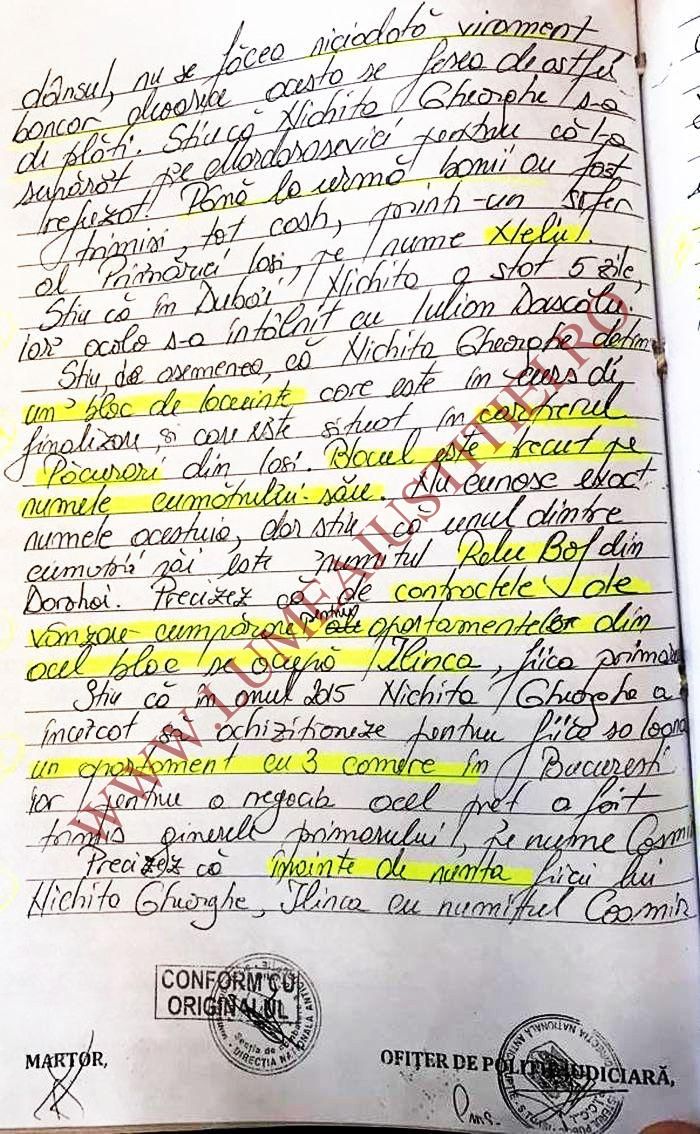 dânsul, nu se făcea niciodată virament
bancar deoarece acesta se ferea de astfel
de plăți. Știu că Nichita Gheorghe s-a
supărat pe pentru că l-a
refuzat. Până la urmă banii au fost
trimiși, tot cash, printr-un șofer
al Primăriei Iași, pe nume Nelu.
Știu că în Dubai Nichita a stat 5 zile,
iar acolo s-a întâlnit cu Iulian Dascălu.
Știu, de asemenea, că Nichita Gheorghe dețin
un bloc de locuințe care este în curs de
finalizare și care este situat în cartierul
Păcurari din Iași. Blocul este trecut pe
numele cumătrului său. Nu cunosc exact
numele acestuia, dar știu că unul dintre
cumătrii săi este numitul Relu Bof din
Dorohoi. Precizez că de contractele de
vânzare-cumpărare pentru apartamentelor din
acel bloc se ocupă Ilinca, fiica primaru
Știu că în anul 2015 Nichita Gheorghe a
încercat să achiziționeze pentru fiica sa Ioana
un apartament cu 3 camere în București
iar pentru a negocia acel preț a fost
trimis ginerele primarului, pe nume Cosmin
Precizez că înainte de nunta fiicei lui
Nichita Gheorghe, Ilinca cu numitul Cosmin
WWW.LUMEAJUSTITIEI.RO
CONFORM CU
ORIGINALUL
DIRECȚIA NAȚIONALĂ ANTICORUPȚIE
MARTOR,
OFIȚER DE POLIȚIE JUDICIARĂ,